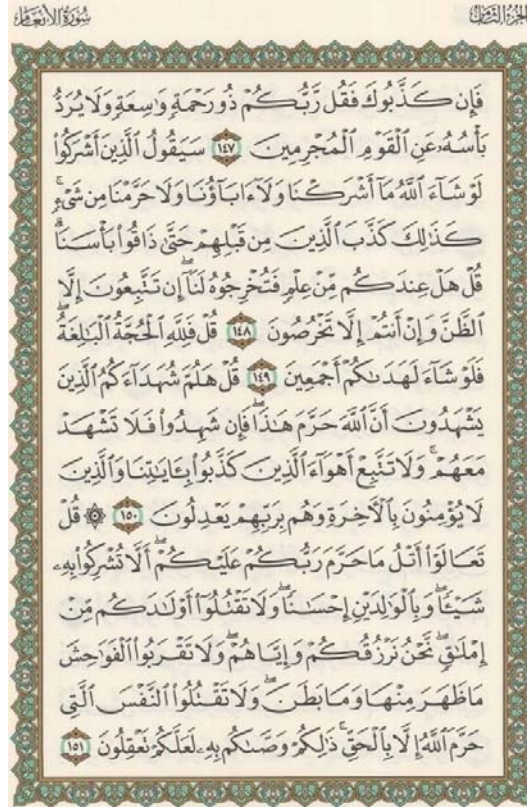 سُورَةُ الأَنْعَام الجُزْءُ الثَّامِنُ
فَإِن كَذَّبُوكَ فَقُل رَّبُّكُمْ ذُو رَحْمَةٍ وَٰسِعَةٍ وَلَا يُرَدُّ
بَأْسُهُۥ عَنِ ٱلْقَوْمِ ٱلْمُجْرِمِينَ ١٤٧ سَيَقُولُ ٱلَّذِينَ أَشْرَكُوا۟
لَوْ شَآءَ ٱللَّهُ مَآ أَشْرَكْنَا وَلَآ ءَابَآؤُنَا وَلَا حَرَّمْنَا مِن شَىْءٍ ۚ
كَذَٰلِكَ كَذَّبَ ٱلَّذِينَ مِن قَبْلِهِمْ حَتَّىٰ ذَاقُوا۟ بَأْسَنَا ۗ
قُلْ هَلْ عِندَكُم مِّنْ عِلْمٍ فَتُخْرِجُوهُ لَنَآ ۖ إِن تَتَّبِعُونَ إِلَّا
ٱلظَّنَّ وَإِنْ أَنتُمْ إِلَّا تَخْرُصُونَ ١٤٨ قُلْ فَلِلَّهِ ٱلْحُجَّةُ ٱلْبَٰلِغَةُ ۖ
فَلَوْ شَآءَ لَهَدَىٰكُمْ أَجْمَعِينَ ١٤٩ قُلْ هَلُمَّ شُهَدَآءَكُمُ ٱلَّذِينَ
يَشْهَدُونَ أَنَّ ٱللَّهَ حَرَّمَ هَٰذَا ۖ فَإِن شَهِدُوا۟ فَلَا تَشْهَدْ
مَعَهُمْ ۚ وَلَا تَتَّبِعْ أَهْوَآءَ ٱلَّذِينَ كَذَّبُوا۟ بِـَٔايَٰتِنَا وَٱلَّذِينَ
لَا يُؤْمِنُونَ بِٱلْـَٔاخِرَةِ وَهُم بِرَبِّهِمْ يَعْدِلُونَ ١٥٠ ۞ قُلْ
تَعَالَوْا۟ أَتْلُ مَا حَرَّمَ رَبُّكُمْ عَلَيْكُمْ ۖ أَلَّا تُشْرِكُوا۟ بِهِۦ
شَيْـًٔا ۖ وَبِٱلْوَٰلِدَيْنِ إِحْسَٰنًا ۖ وَلَا تَقْتُلُوٓا۟ أَوْلَٰدَكُم مِّنْ
إِمْلَٰقٍ ۖ نَّحْنُ نَرْزُقُكُمْ وَإِيَّاهُمْ ۖ وَلَا تَقْرَبُوا۟ ٱلْفَوَٰحِشَ
مَا ظَهَرَ مِنْهَا وَمَا بَطَنَ ۖ وَلَا تَقْتُلُوا۟ ٱلنَّفْسَ ٱلَّتِى
حَرَّمَ ٱللَّهُ إِلَّا بِٱلْحَقِّ ۚ ذَٰلِكُمْ وَصَّىٰكُم بِهِۦ لَعَلَّكُمْ تَعْقِلُونَ ١٥١